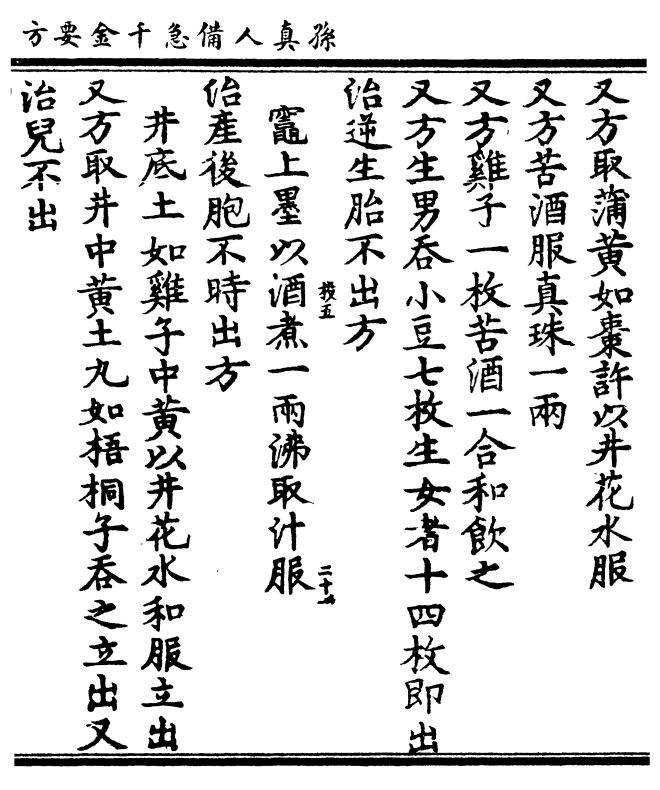 孫真人備急千金要方
又方取蒲黃如棗許以井花水服
又方苦酒服真珠一兩
又方雞子一枚苦酒一合和飲之
又方生男吞小豆七枚生女者十四枚即出
治逆生胎不出方
竈上墨以酒煮一兩沸取汁服
卷五
二十一
治產後胞不時出方
井底土如雞子中黃以井花水和服立出
又方取井中黃土丸如梧桐子吞之立出又
治兒不出